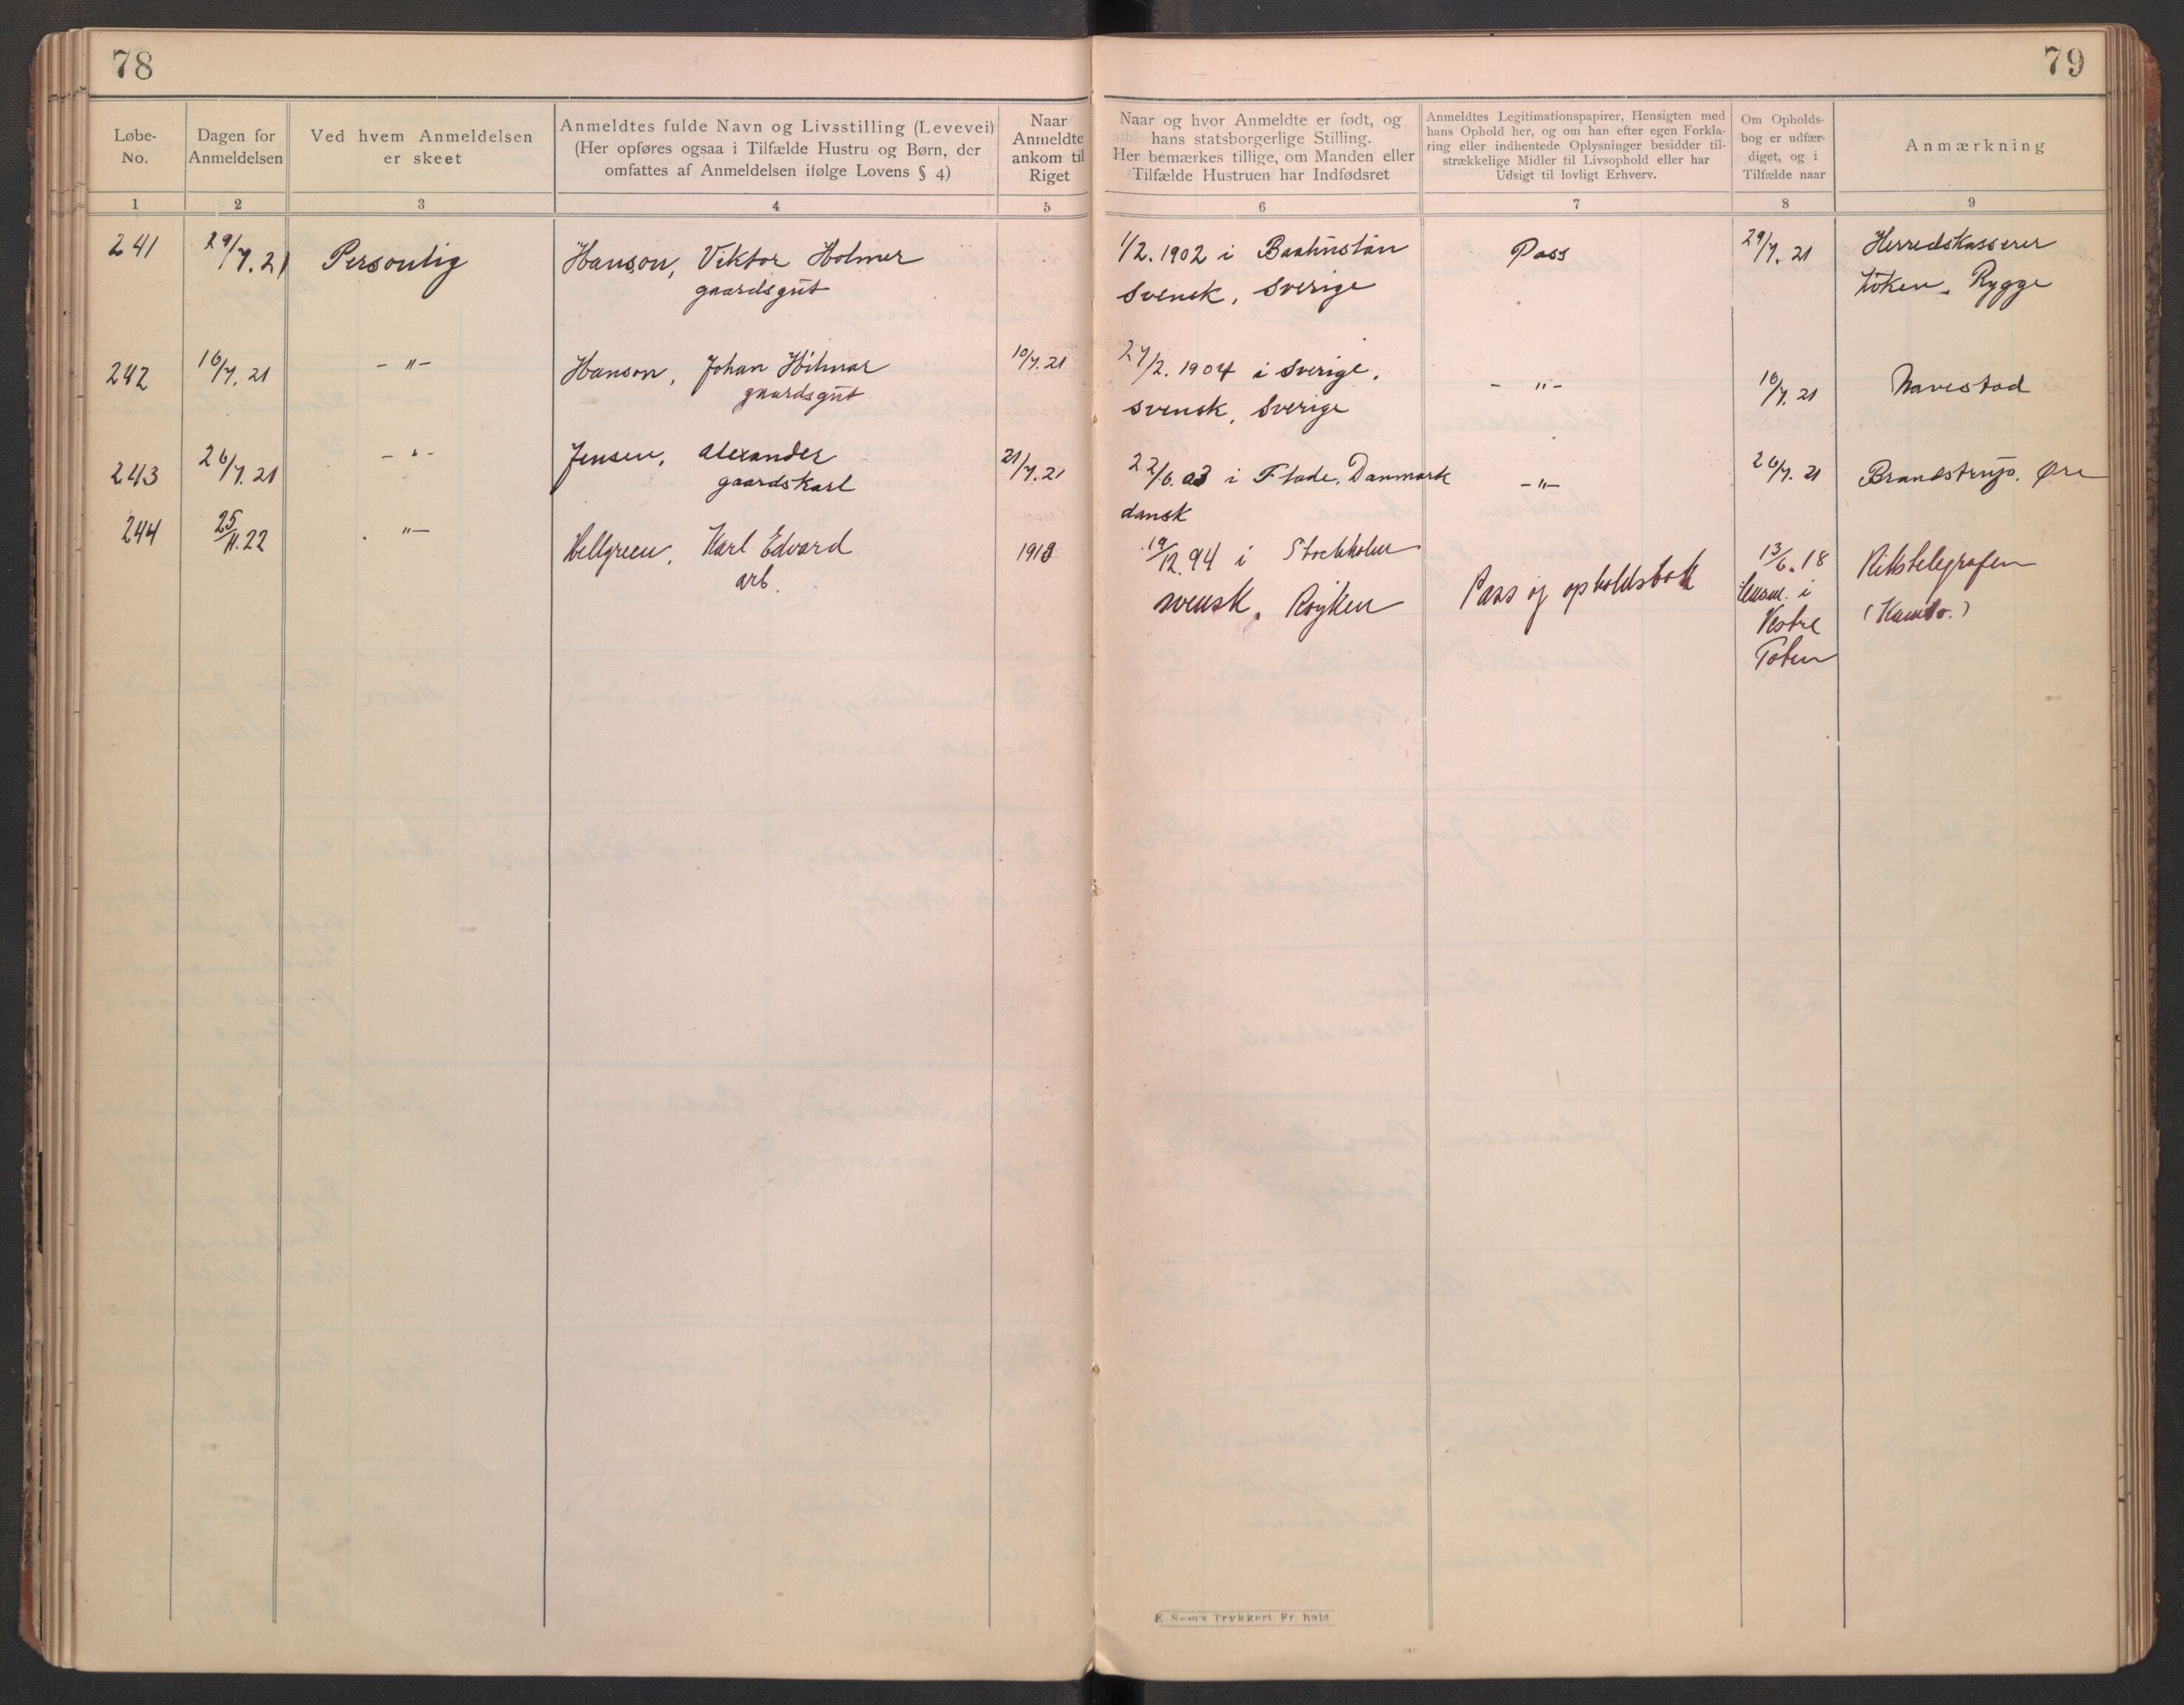 78
Løbe-
No.
Dagen for
Anmeldelsen
Ved hvem Anmeldelsen
er skeet
Anmeldtes fulde Navn og Livsstilling (Levevei)
(Her opføres ogsaa i Tilfælde Hustru og Børn, der
omfattes af Anmeldelsen ifølge Lovens § 4)
Naar
Anmeldte
ankom til
Riget
1 2 3 4 5
241 29/7.21 Personlig Hanson, Viktor Holmer
gaardsgut
242 16/7.21 - " - Hanson, Johan Hilmar 10/7.21
gaardsgut
243 26/7.21 - " - Jensen, Alexander 21/7.21
gaardskarl
244 25/11.22 " — Hellgreen, Karl Edvard 1918
arb.
79
Naar og hvor Anmeldte er født, og
hans statsborgerlige Stilling.
Her bemærkes tillige, om Manden eller
Tilfælde Hustruen har Indfødsret
Anmeldtes Legitimationspapirer, Hensigten med
hans Ophold her, og om han efter egen Forkla-
ring eller indhentede Oplysninger besidder til-
strækkelige Midler til Livsophold eller har
Udsigt til lovligt Erhverv.
Om Opholds-
bog er udfær-
diget, og i
Tilfælde naar
Anmærkning
6 7 8 9
1/2.1902 i Baahuslän Pass 29/7.21 Herredskasserer
svensk, Sverige Rygge
27/2.1904 i Sverige.
svensk, Sverige - " - 16/7.21 Navestad
22/6.03 i Flade, Danmark - " - 26/7.21 Brandstrup, Øre
dansk
19/12.94 i Stockholm 13/6.18 Rikstelegrafen
svensk, Røyken Pass og opholdsbok lensm. i (Kambo.)
Vestre
Toten
E. Sem's Trykkeri, Fr. hald